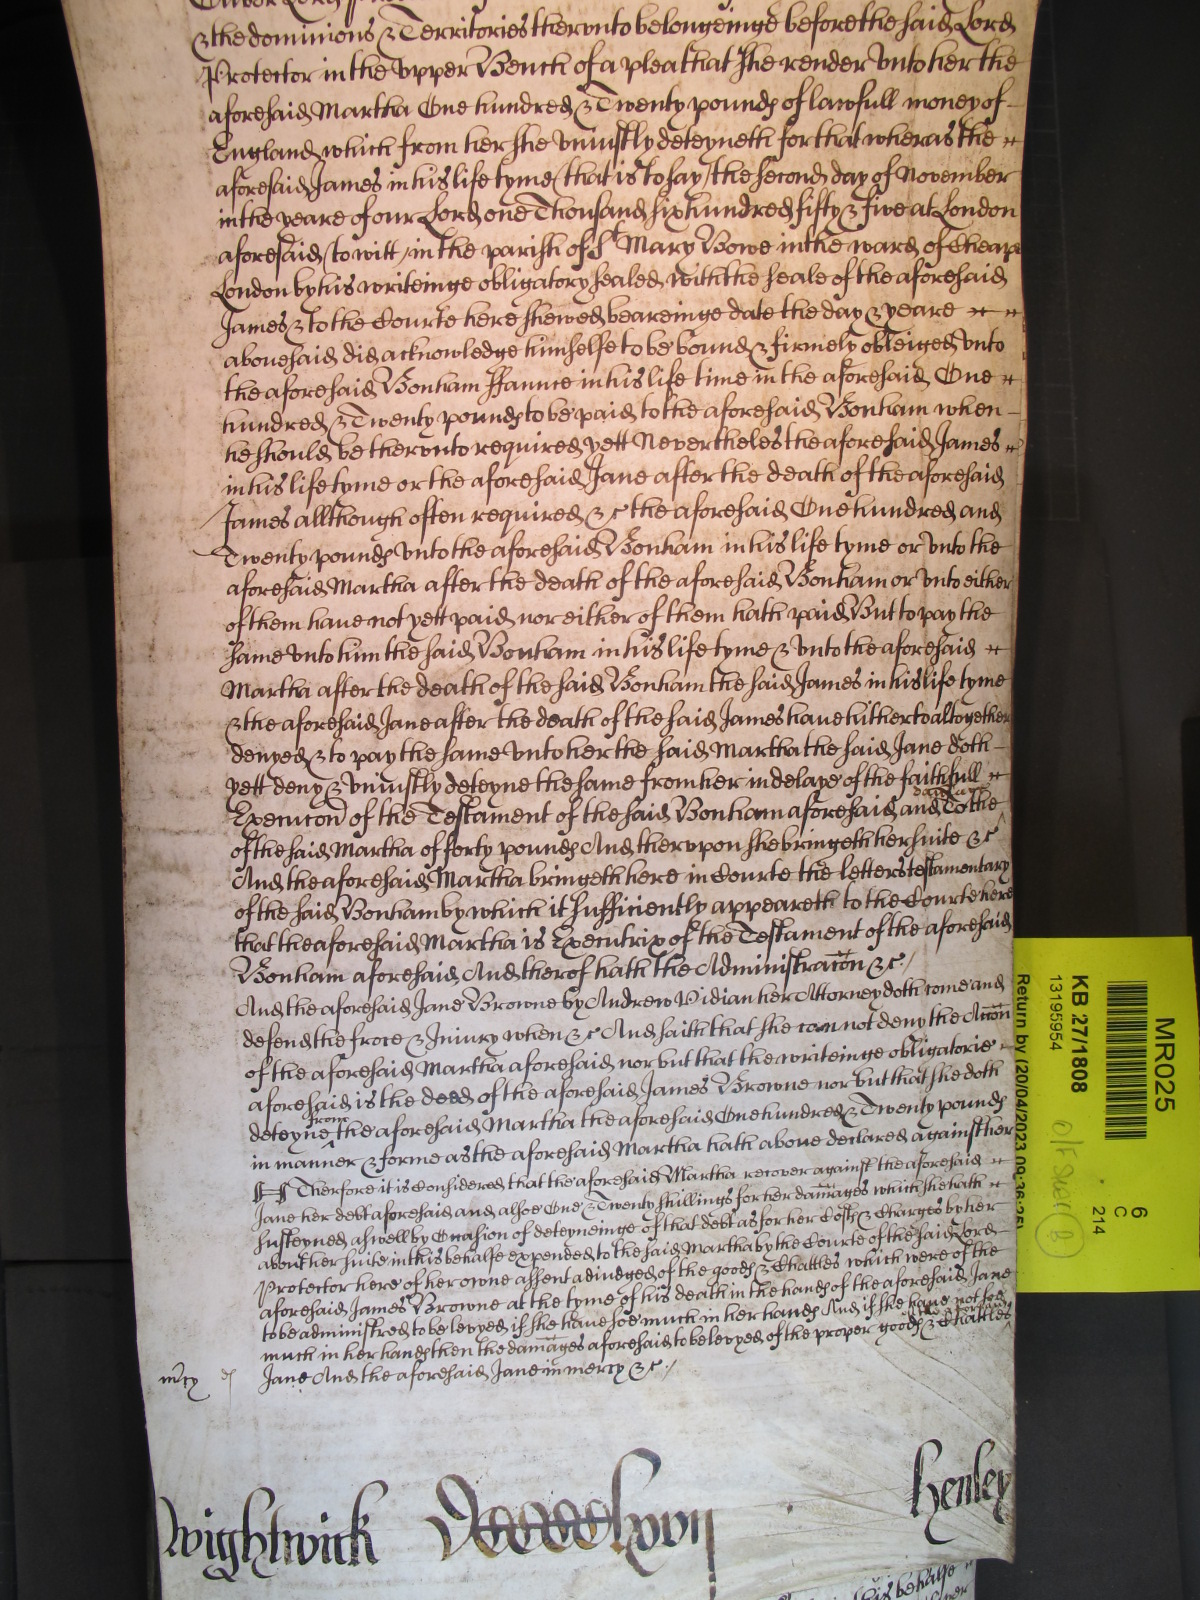 & the dominions & Territories thervnto belongeinge before the said Lord
Protector in the vpper Bench of a plea that she render vnto her the
aforesaid Martha One hundred & Twenty pounds of lawfull money of
England which from her she vniustly deteyneth for that wheras the
aforesaid James in his life tyme (that is to say) the second day of November
in the yeare of our Lord one Thousand six hundred fifty & five at London
aforesaid (to witt) in the parish of St Mary Bowe in the ward of Cheape
London by his writeinge obligatory sealed with the seale of the aforesaid
James & to the Courte here shewed beareinge date the day & yeare
abouesaid did acknowledge himselfe to be bound & firmely obleiged vnto
the aforesaid Bonham ffaunce in his life time in the aforesaid One
hundred & Twenty pounds to be paid to the aforesaid Bonham when
he should be thervnto required yett Nevertheles the aforesaid James
in his life tyme or the aforesaid Jane after the death of the aforesaid
James allthough often required &c the aforesaid One hundred and
Twenty pounds vnto the aforesaid Bonham in his life tyme or vnto the
aforesaid Martha after the death of the aforesaid Bonham or vnto either
of them haue not yett paid nor either of them hath paid But to pay the
same vnto him the said Bonham in his life tyme & vnto the aforesaid
Martha after the death of the said Bonham the said James in his life tyme
& the aforesaid Jane after the death of the said James haue hitherto altogether
denyed & to pay the same vnto her the said Martha the said Jane doth
yett deny & vniustly deteyne the same from her in delaye of the faithfull
Execucon of the Testament of the said Bonham aforesaid and To the damage
of the said Martha of forty pounds And thervpon she bringeth her suite &c
And the aforesaid Martha bringeth here in Courte the letters testamentary
of the said Bonham by which it sufficiently appeareth to the Courte here
that the aforesaid Martha is Executrix of the Testament of the aforesaid
Bonham aforesaid And therof hath the Administracon &c
And the aforesaid Jane Browne by Andrew Vidian her Attorney doth come and
defend the force & Iniury when &c And saith that she can not deny the Accon
of the aforesaid Martha aforesaid nor but that the writeinge obligatorie
aforesaid is the deed of the aforesaid James Browne nor but that she doth
deteyne from the aforesaid Martha the aforesaid One hundred & Twenty pounds
in manner & forme as the aforesaid Martha hath aboue declared against her
Therfore it is Considered that the aforesaid Martha recover against the aforesaid
Jane her debt aforesaid and alsoe One & Twenty shillings for her damages which she hath
susteyned aswell by Occasion of deteyneinge of that debt as for her Costs & Charges by her
about her suite in this behalfe expended to the said Martha by the Courte of the said Lord
Protector here of her owne assent adiudged of the goods & Chattles which were of the
aforesaid James Browne at the tyme of his death in the hands of the aforesaid Jane
to be administred to be levyed if she haue soe much in her hands And if she haue not soe
much in her hands then the damages aforesaid to be levyed of the proper goods & Chattles of the aforesaid
Jane And the aforesaid Jane in mercy &c
mercy
Wightwick
Henley
MR025
6
C
214
KB 27/1808
13195954
Return by (20/04/2023 09:36:25)